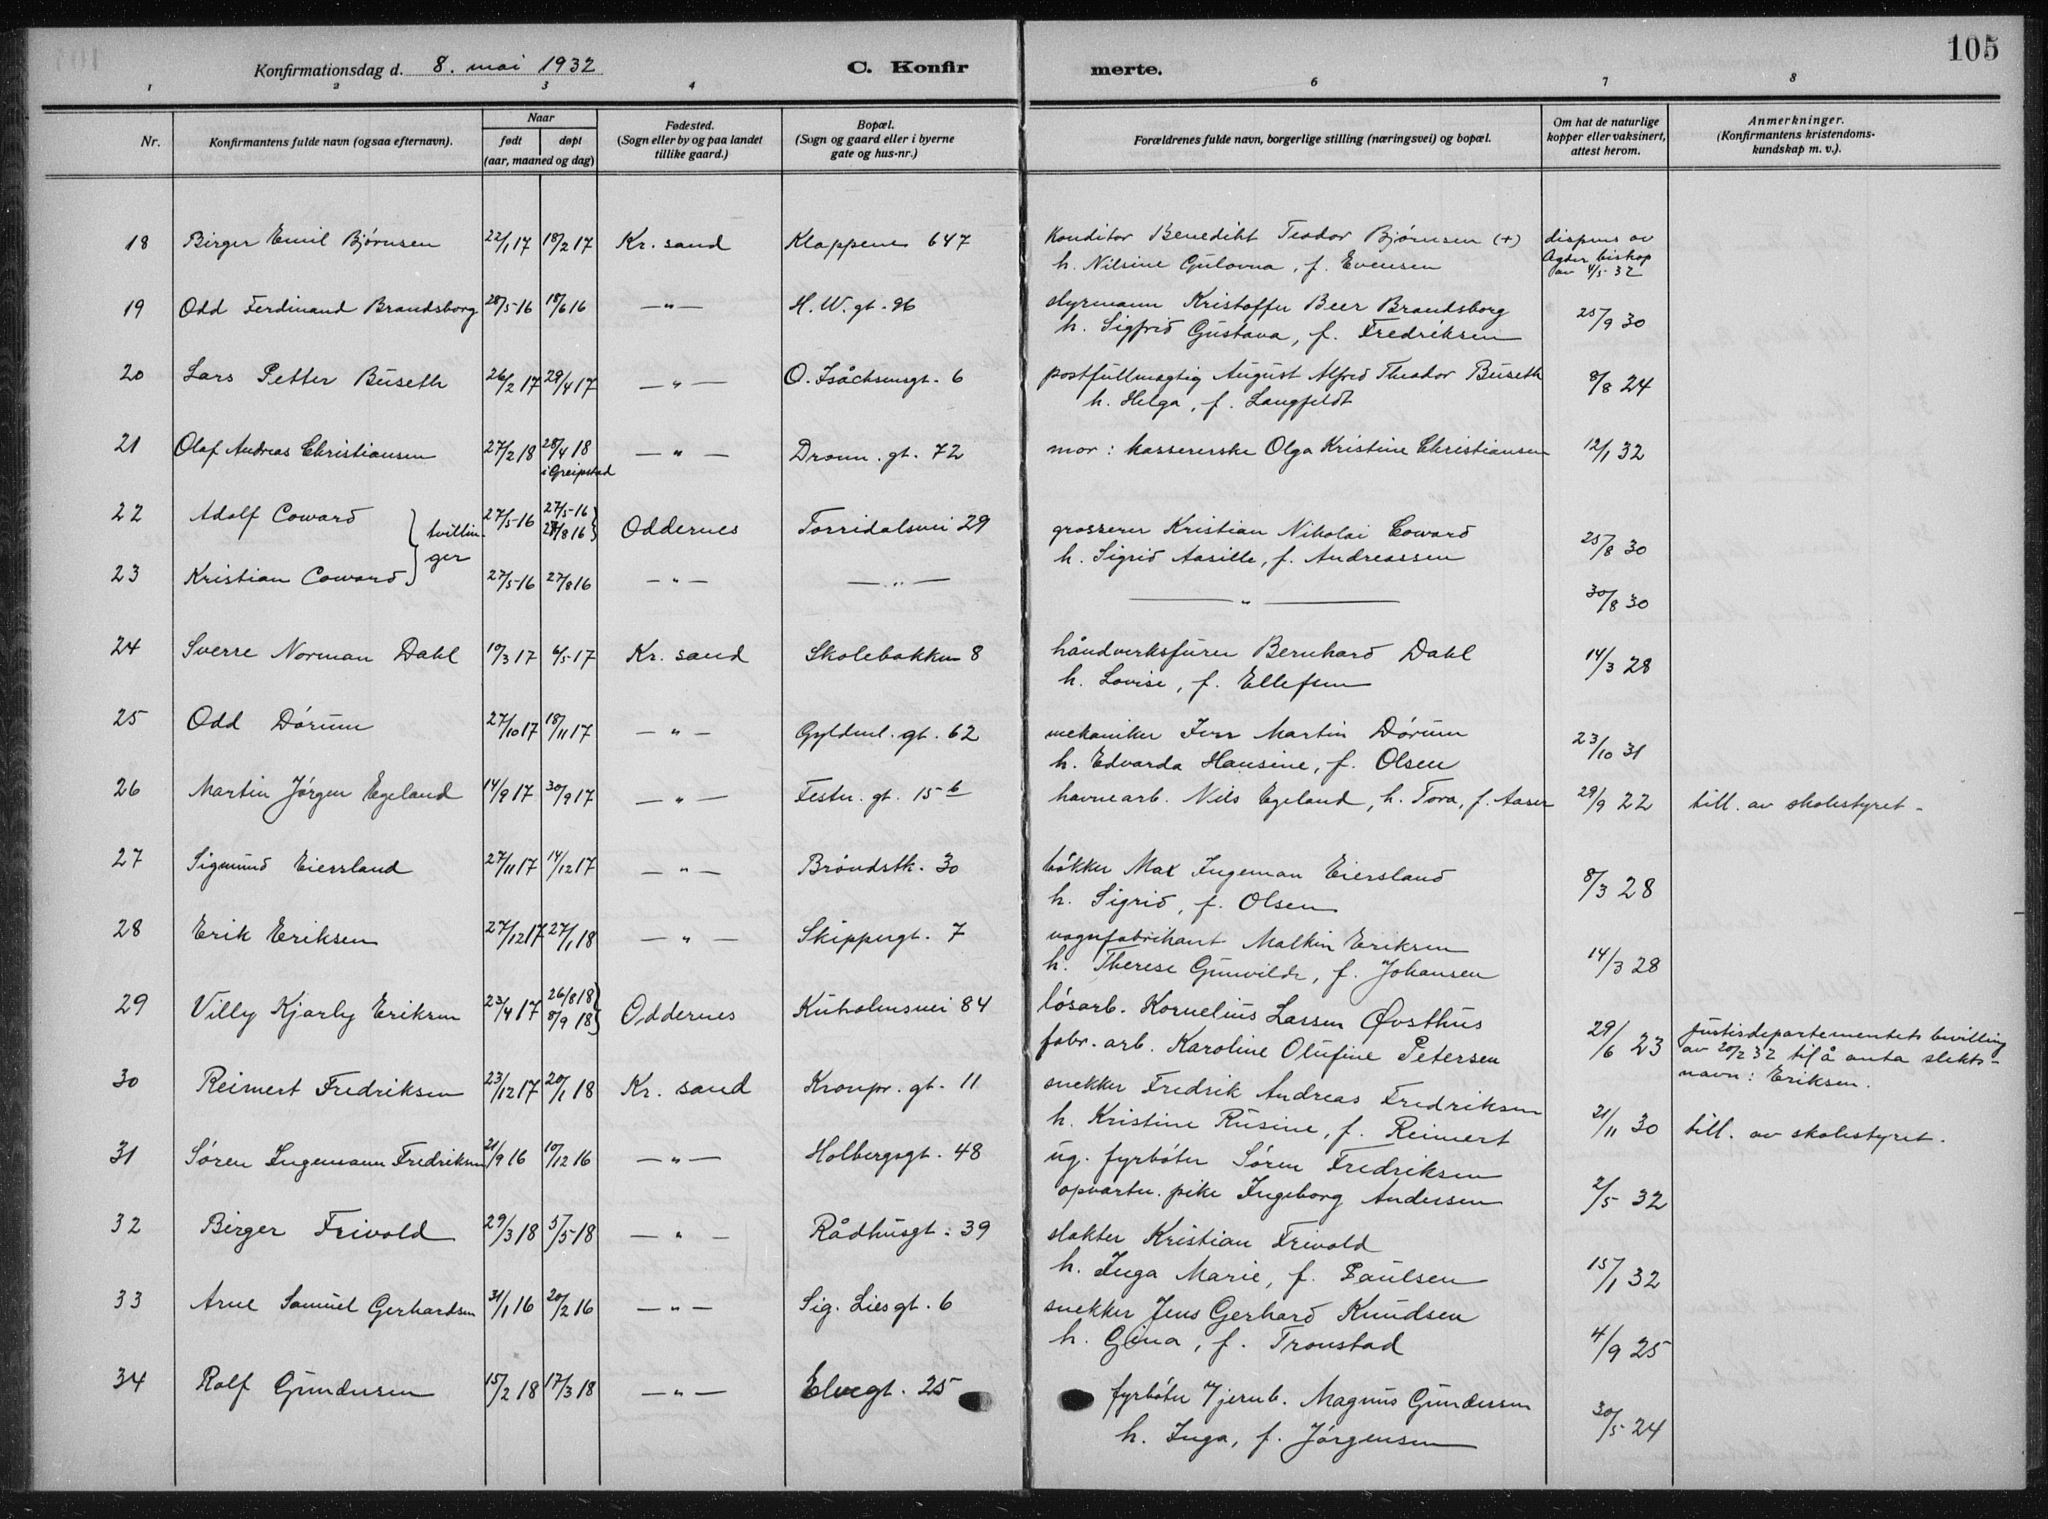 105
Konfirmationsdag d. 8. mai 1932 C. Konfir merte.
1 2 3 4 5 6 7 8
Nr. Konfirmantens fulde navn (ogsaa efternavn). Naar født døpt (aar, maaned og dag) Fødested. (Sogn eller by og paa landet tillike gaard.) Bopæl. (Sogn og gaard eller i byerne gate og hus-nr.) Forældrenes fulde navn, borgerlige stilling (næringsvei) og bopæl. Om hat de naturlige kopper eller vaksinert, attest herom. Anmerkninger. (Konfirmantens kristendoms-kundskap m. v.).
18 Birger Emil Bjørnsen 22/1 17 18/2 17 Kr. sand Kloppene 647 Konditor Benedikt Teodor Bjørnsen (+) dispens av
h. Nilsine Gulovna, f. Evensen Agder biskop
av 4/5-32
19 Odd Ferdinand Brandsborg 28/5-16 18/6 16 —"— H. W. gt. 96 styrmann Kristoffer Beer Brandsborg
h. Sigfrid Gustava, f. Fredriksen 25/9 30
20 Lars Petter Buseth 26/2 17 29/4 17 —"— O. Isåchsensgt. 6 postfullmagtig August Alfred Theodor Buseth 8/8 24
h. Helga, f. Langfeldt
21 Olaf Andreas Christiansen 27/2 18 28/4 18 —"— Dronn. gt. 72 mor: kassererske Olga Kristine Christiansen 12/1 32
i Greipstad
22 Adolf Coward } tvillin- 27/5-16 27/5-16 Oddernes Torridalsvei 29 grosserer Kristian Nikolai Coward
27/8 16 }
ger h. Sigrid Aasille, f. Andreassen 25/8 30
23 Kristian Coward } 27/5-16 27/8 16 —"— —"— —"— 30/8 30
24 Sverre Norman Dahl 10/3 17 6/5-17 Kr. sand Skolebakken 8 håndverksfører Bernhard Dahl
h. Lovise, f. Ellefsen 14/3 28
25 Odd Dórum 27/10 17 18/11 17 —"— Gyldenl. gt. 62 mekaniker Iver Martin Dórum
h. Edvarda Hansine, f. Olsen 23/10 31
26 Martin Jørgen Egeland 14/9 17 30/9 17 —"— Festn. gt. 15 b havnearb. Nils Egeland, h. Tora, f. Aaser 29/9 22 till. av skolestyret -
27 Sigmund Eiersland 27/11 17 14/12 17 —"— Bróndstk. 30 bókker Max Ingeman Eiersland
h. Sigrid, f. Olsen 8/3 28
28 Erik Eriksen 27/12 17 27/1 18 —"— Skippergt. 7 vognfabrikant Malkin Eriksen
h. Therese Gunvilde, f. Johansen 14/3 28
29 Villy Kjarly Eriksen 23/4 17 26/8 18 } Oddernes Kuholmsvei 84 lósarb. Kornelius Lassen Øvsthus
8/9 18 }
fabr. arb. Karoline Olufine Petersen 29/6 23 Justisdepartementets bevilling
av 20/2 32 til å anta slekts-
navn: Eriksen.
30 Reimert Fredriksen 23/12 17 20/1 18 Kr. sand Kronpr. gt. 11 snekker Fredrik Andreas Fredriksen
h. Kristine Rusine, f. Reimert 21/11 30 till. av skolestyret.
31 Søren Ingemann Fredriksen 21/9 16 10/12 16 —"— Holbergsgt. 48 ug. fyrbóter Søren Fredriksen
opvartn. pike Ingeborg Andersen 2/5 32
32 Birger Frivold 29/3 18 5/5-18 —"— Rådhusgt. 39 slakter Kristian Frivold
h. Inga Marie, f. Paulsen 15/1 32
33 Arne Samuel Gerhardsen 31/1 16 20/2 16 —"— Sig. Liesgt. 6 snekker Jens Gerhard Knudsen
h. Gina, f. Tronstad 4/9 25
34 Rolf Gundersen 15/2 18 17/3 18 —"— Elvegt. 25 fyrbóter v/jernb. Magnus Gundersen
h. Inga, f. Jørgensen 30/5-24